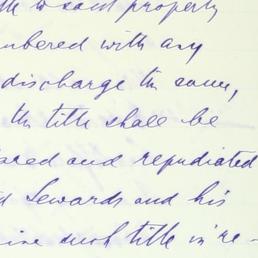 to said property
bered with any
discharge the same,
the title shall be
and repudiated
Sewards and his
such title in re-